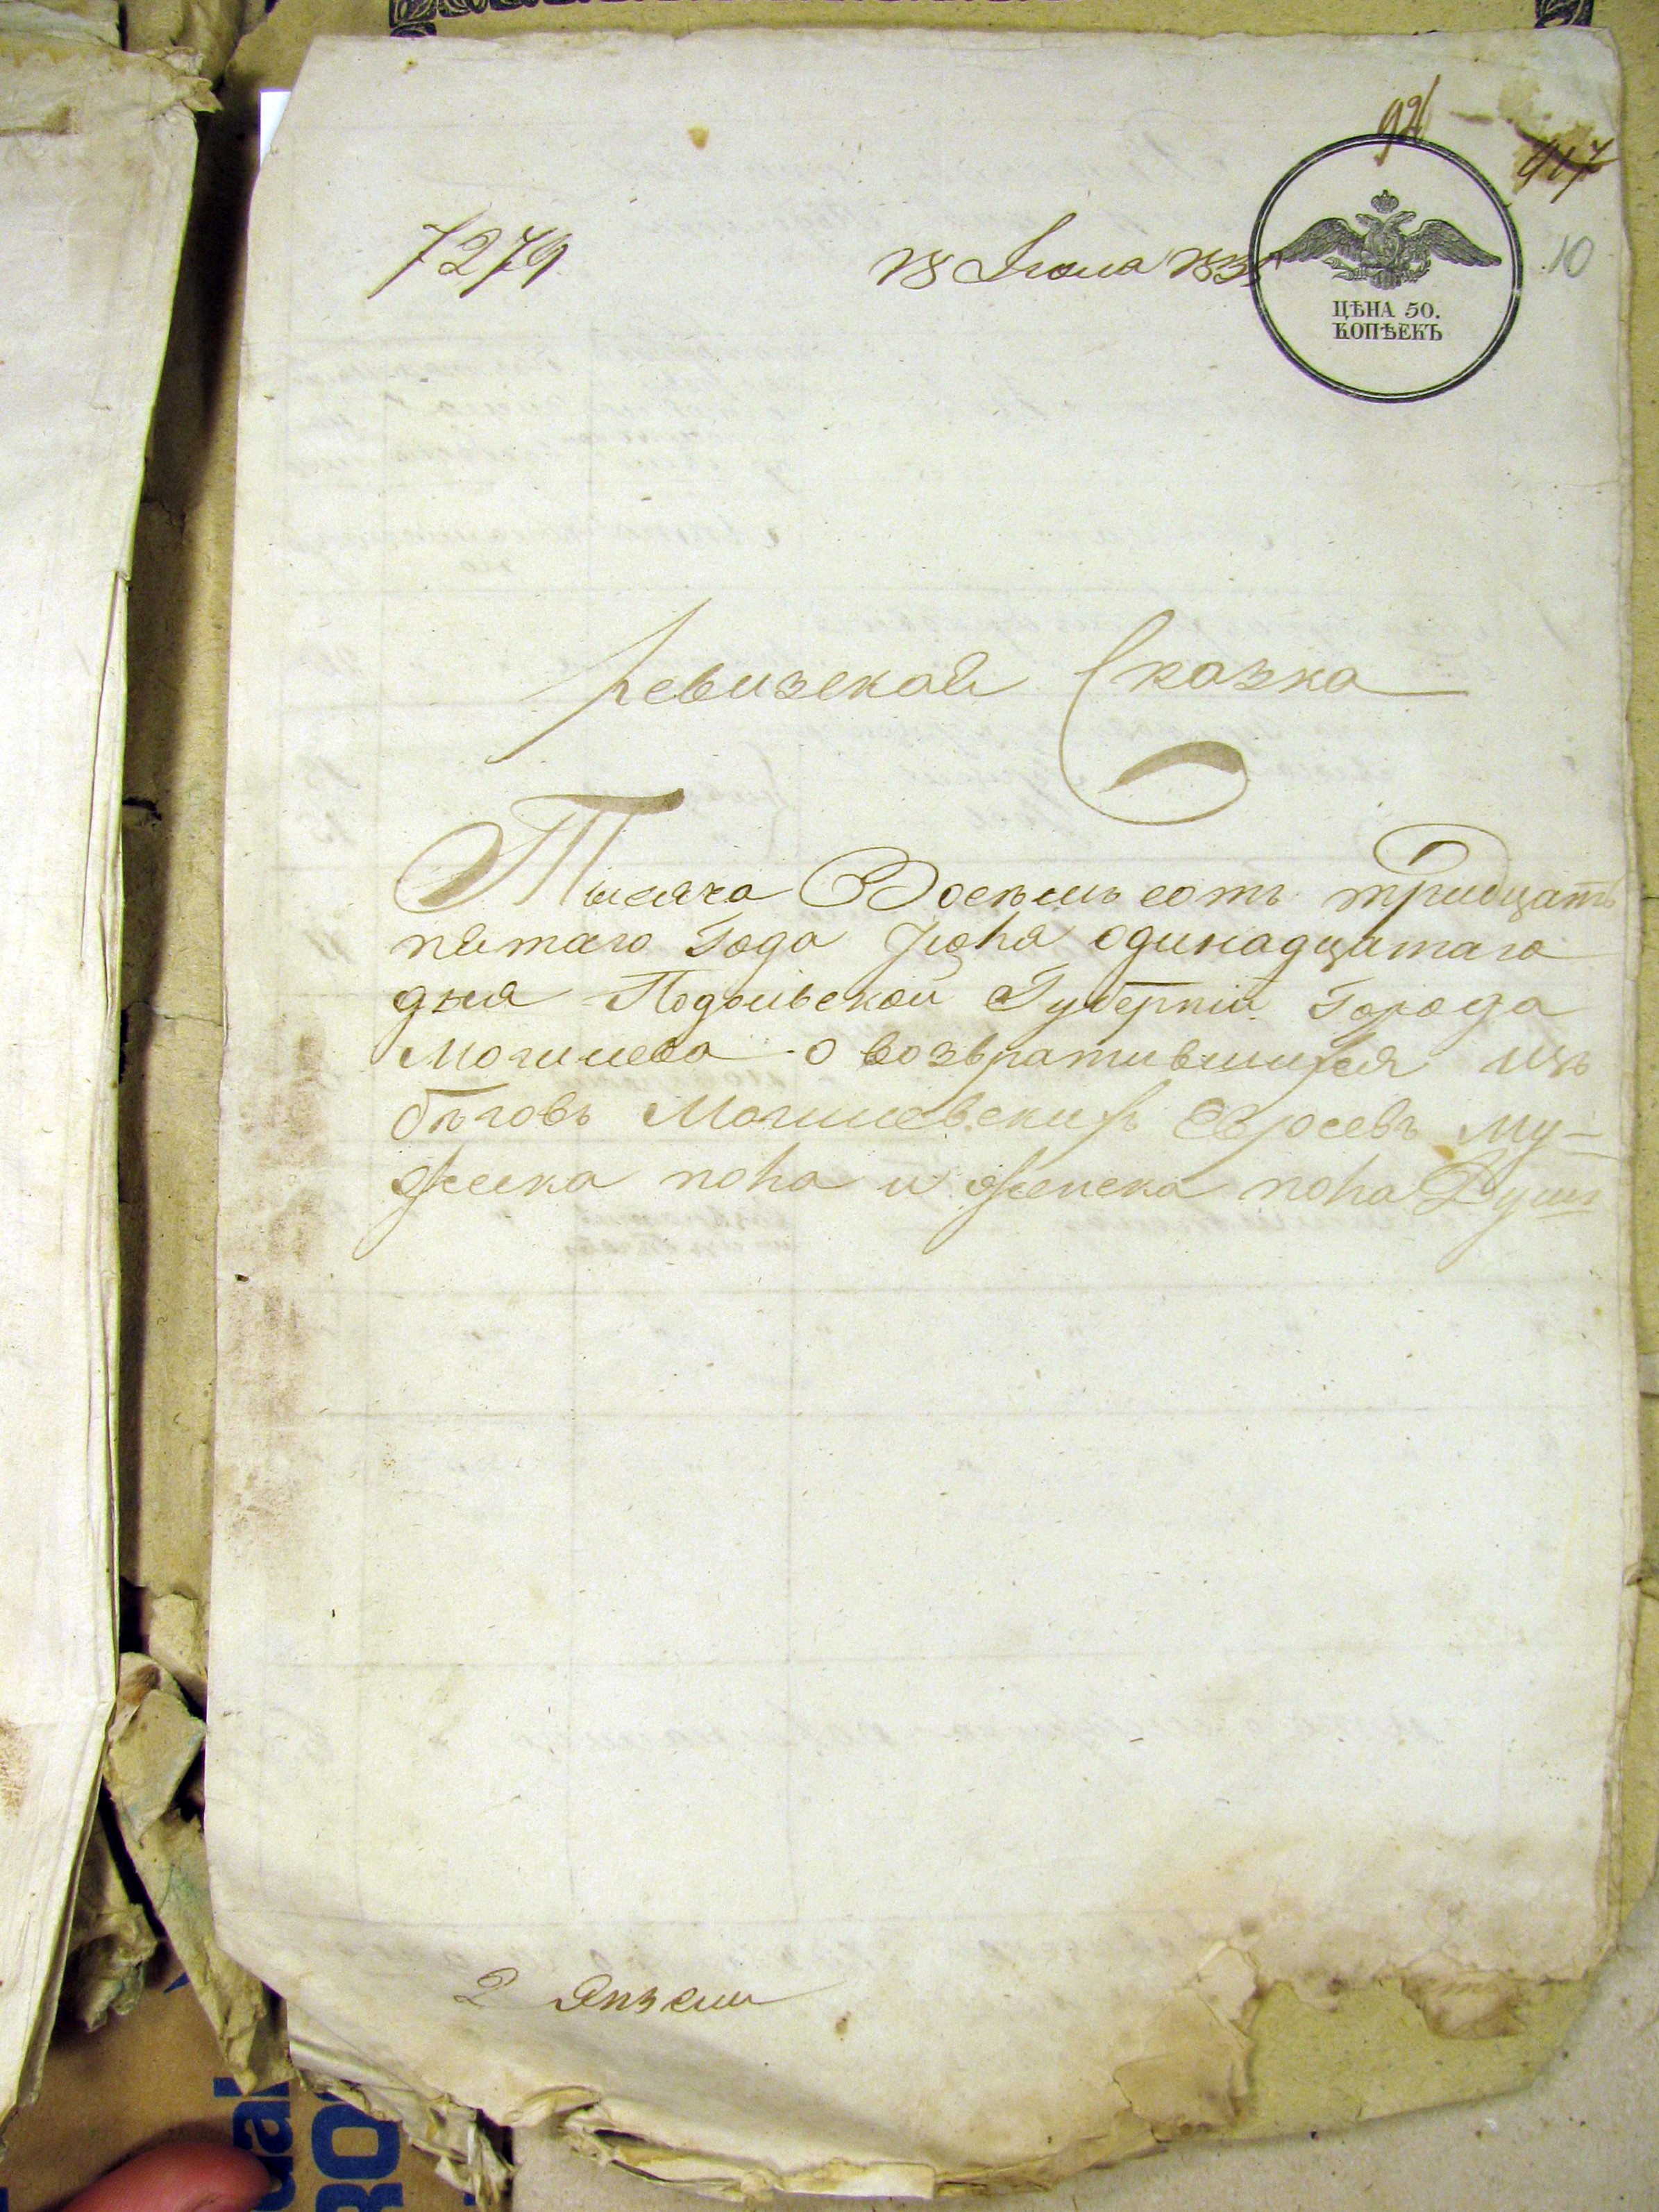 92
917
7279
18 Июля 1835
10
ЦѢНА 50.
КОПѢЕКЪ
Ревизская Сказка
Тысяча Восемь сотъ тридцать
пятаго Года Іюля одинадцатаго
дня Подольской Губерніи Города
Могилева о возвратившихся изъ
бѣговъ Могилевскихъ Евреевъ му-
жеска пола и женска пола Душъ
2